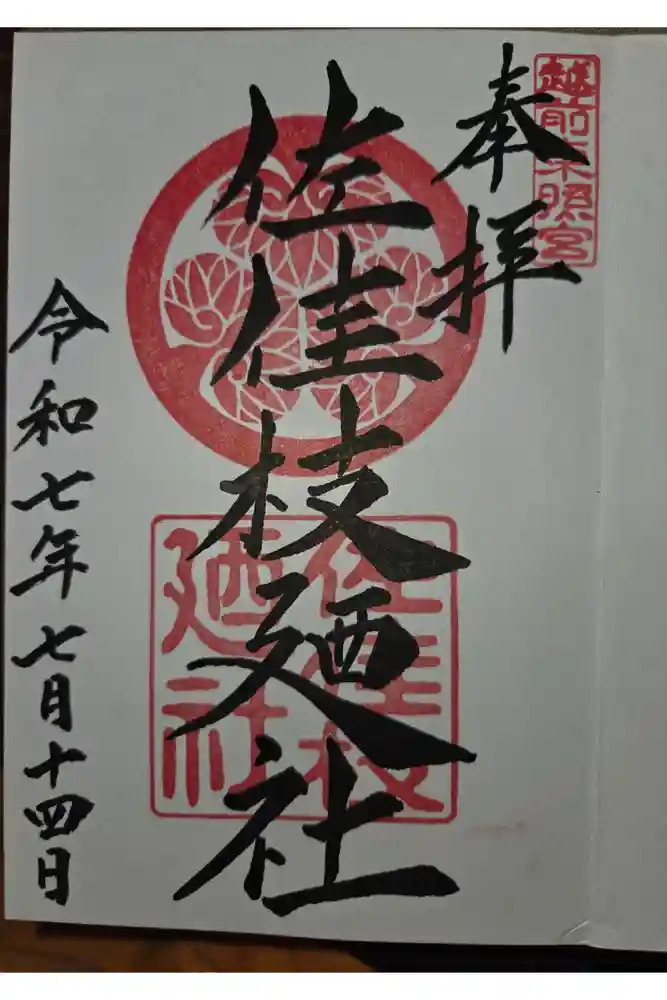 越前東照宮
奉拝
佐佳枝廼社
佐佳枝
廼社
令和七年七月十四日